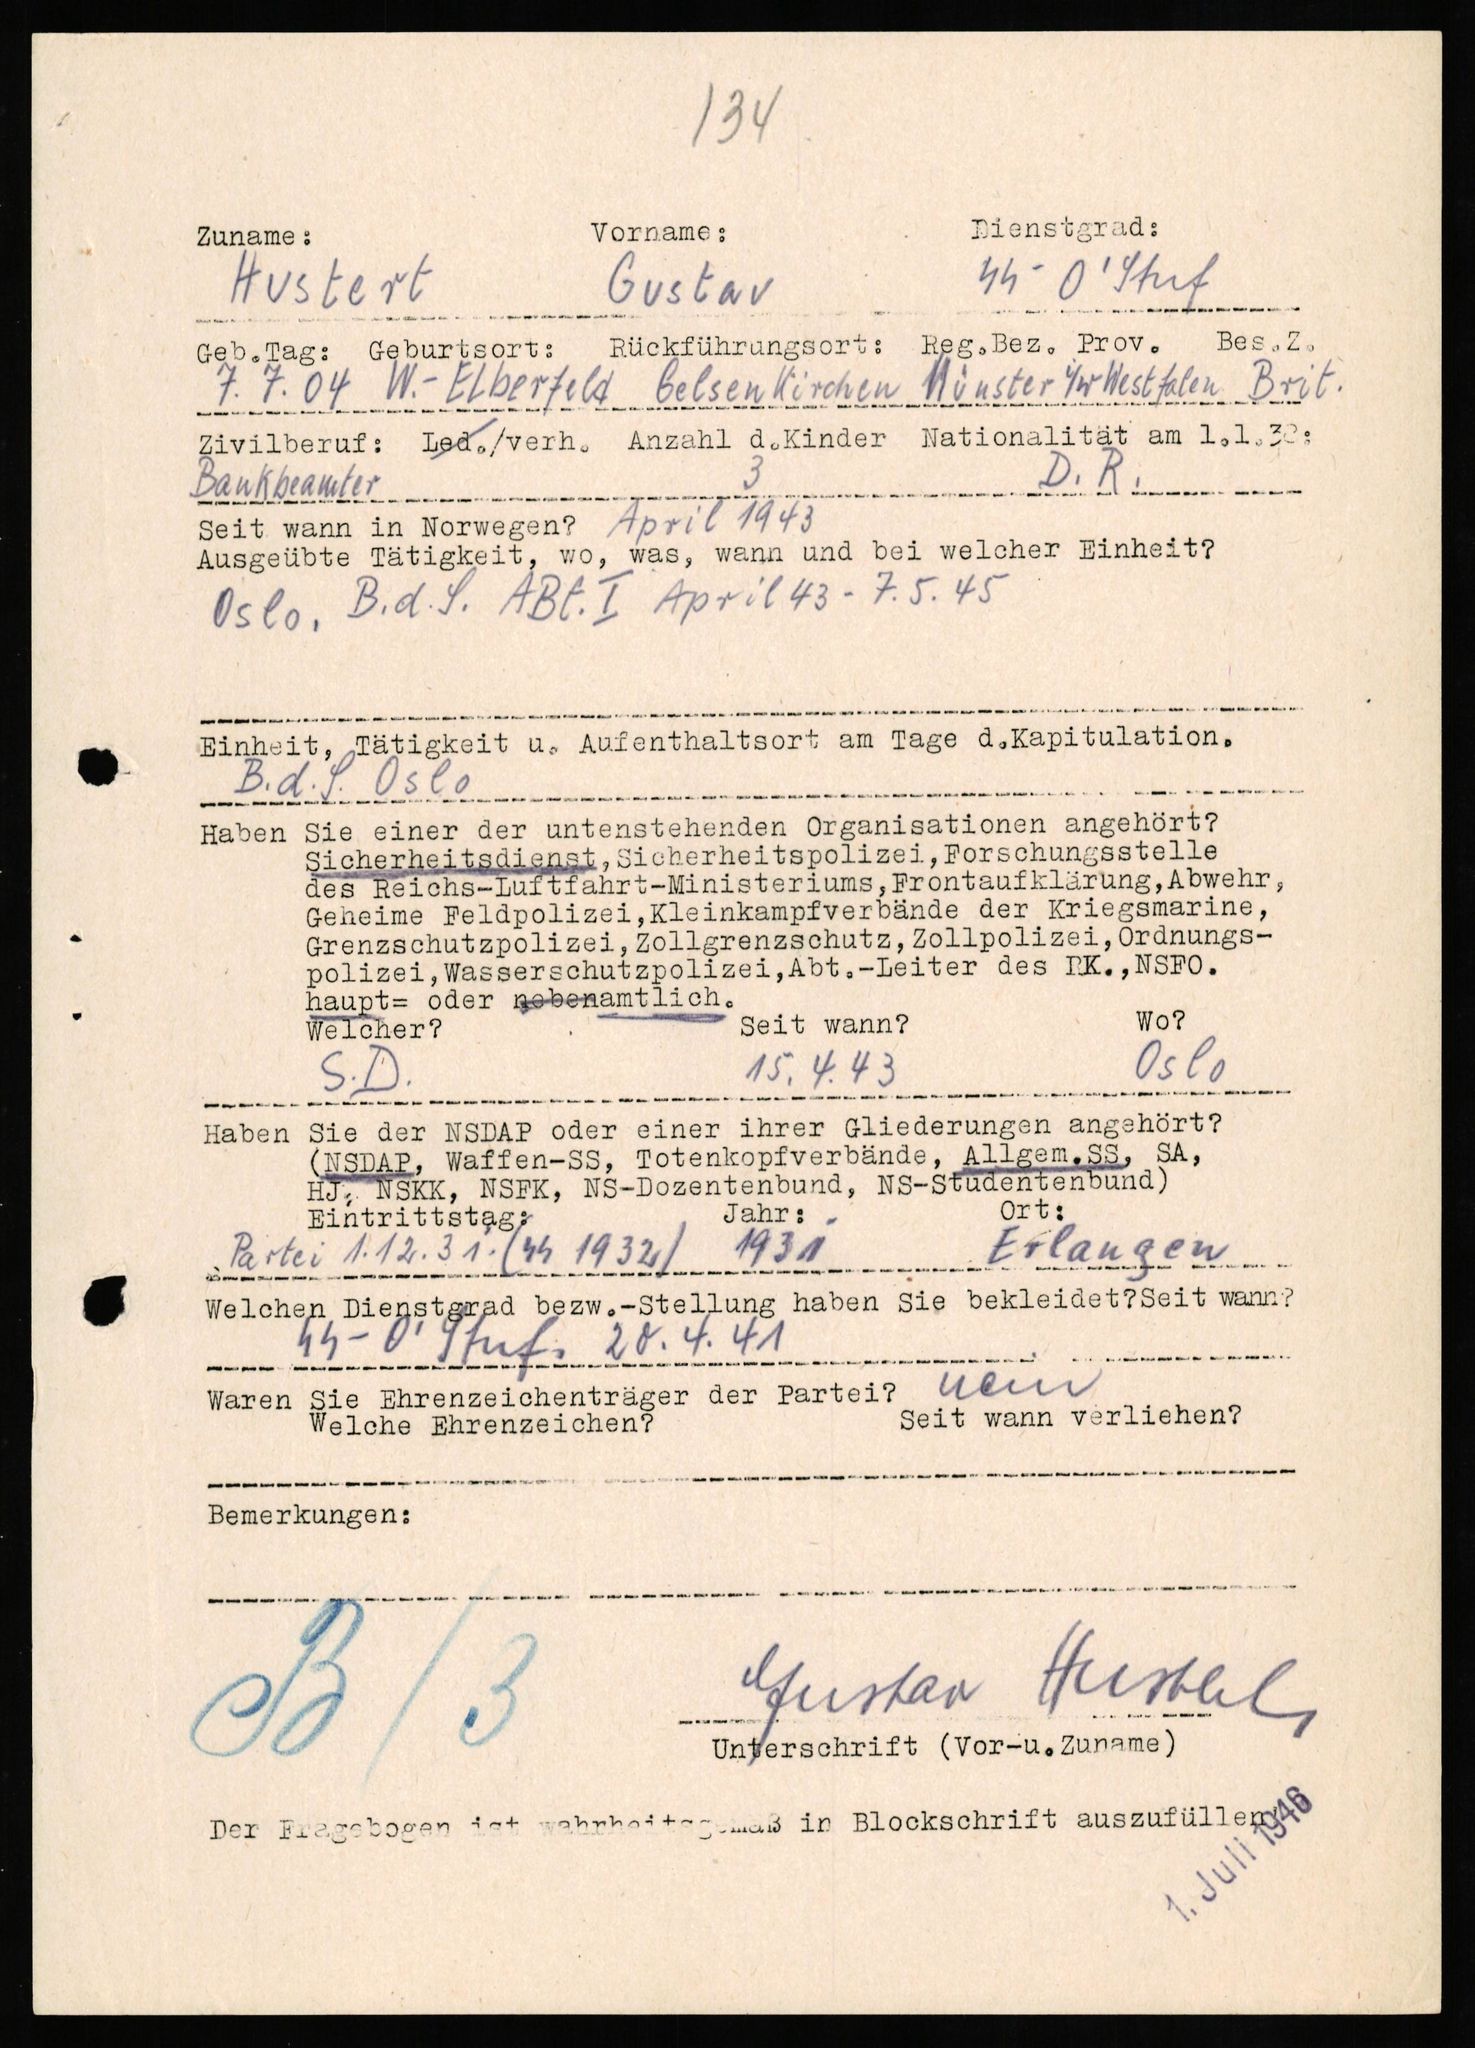 134
Zuname: Vorname: Dienstgrad:
Hustert Gustav SS- O'Stuf
Geb.Tag: Geburtsort: Rückführungsort: Reg.Bez. Prov. Bes.Z.
7.7.04 W.-Elberfeld Gelsenkirchen Münster i/w Westfalen Brit.
Zivilberuf: Led./verh. Anzahl d.Kinder Nationalität am 1.1.38:
Bankbeamter 3 D.R.
Seit wann in Norwegen? April 1943
Ausgeübte Tätigkeit, wo, was, wann und bei welcher Einheit?
Oslo. B.d.S. ABt. I April 43 - 7.5.45
Einheit, Tätigkeit u. Aufenthaltsort am Tage d.Kapitulation.
B.d.S. Oslo
Haben Sie einer der untenstehenden Organisationen angehört?
Sicherheitsdienst, Sicherheitspolizei, Forschungsstelle
des Reichs-Luftfahrt-Ministeriums, Frontaufklärung, Abwehr,
Geheime Feldpolizei, Kleinkampfverbände der Kriegsmarine,
Grenzschutzpolizei, Zollgrenzschutz, Zollpolizei, Ordnungs-
polizei, Wasserschutzpolizei, Abt.-Leiter des RK., NSFO.
haupt= oder nebenamtlich.
Welcher? Seit wann? Wo?
S.D. 15.4.43 Oslo
Haben Sie der NSDAP oder einer ihrer Gliederungen angehört?
(NSDAP, Waffen-SS, Totenkopfverbände, Allgem.SS, SA,
HJ, NSKK, NSFK, NS-Dozentenbund, NS-Studentenbund)
Eintrittstag: Jahr: Ort:
Partei 1.12.31. (SS 1932) 1931 Erlangen
Welchen Dienstgrad bezw.-Stellung haben Sie bekleidet? Seit wann?
SS- O'Stuf. 20.4.41
Waren Sie Ehrenzeichenträger der Partei? nein
Welche Ehrenzeichen? Seit wann verliehen?
Bemerkungen:
B/3
Gustav Hustert
Unterschrift (Vor-u.Zuname)
Der Fragebogen ist wahrheitsgemäß in Blockschrift auszufüllen.
1. Juli 1946